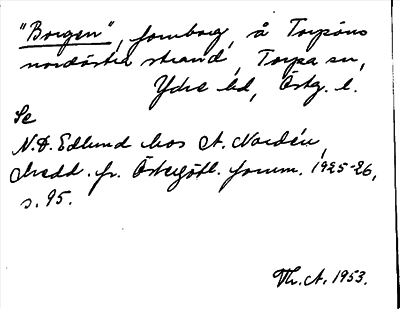 "Borgen", fornborg, å Torpöns
nordöstra strand, Torpa sn,
Ydre hd, Östg. l.
Se
N.D. Edlund hos A. Nordén,
Medd. fr. Östergötl. fornm. 1925-26,
s. 95.
Th. A. 1953.